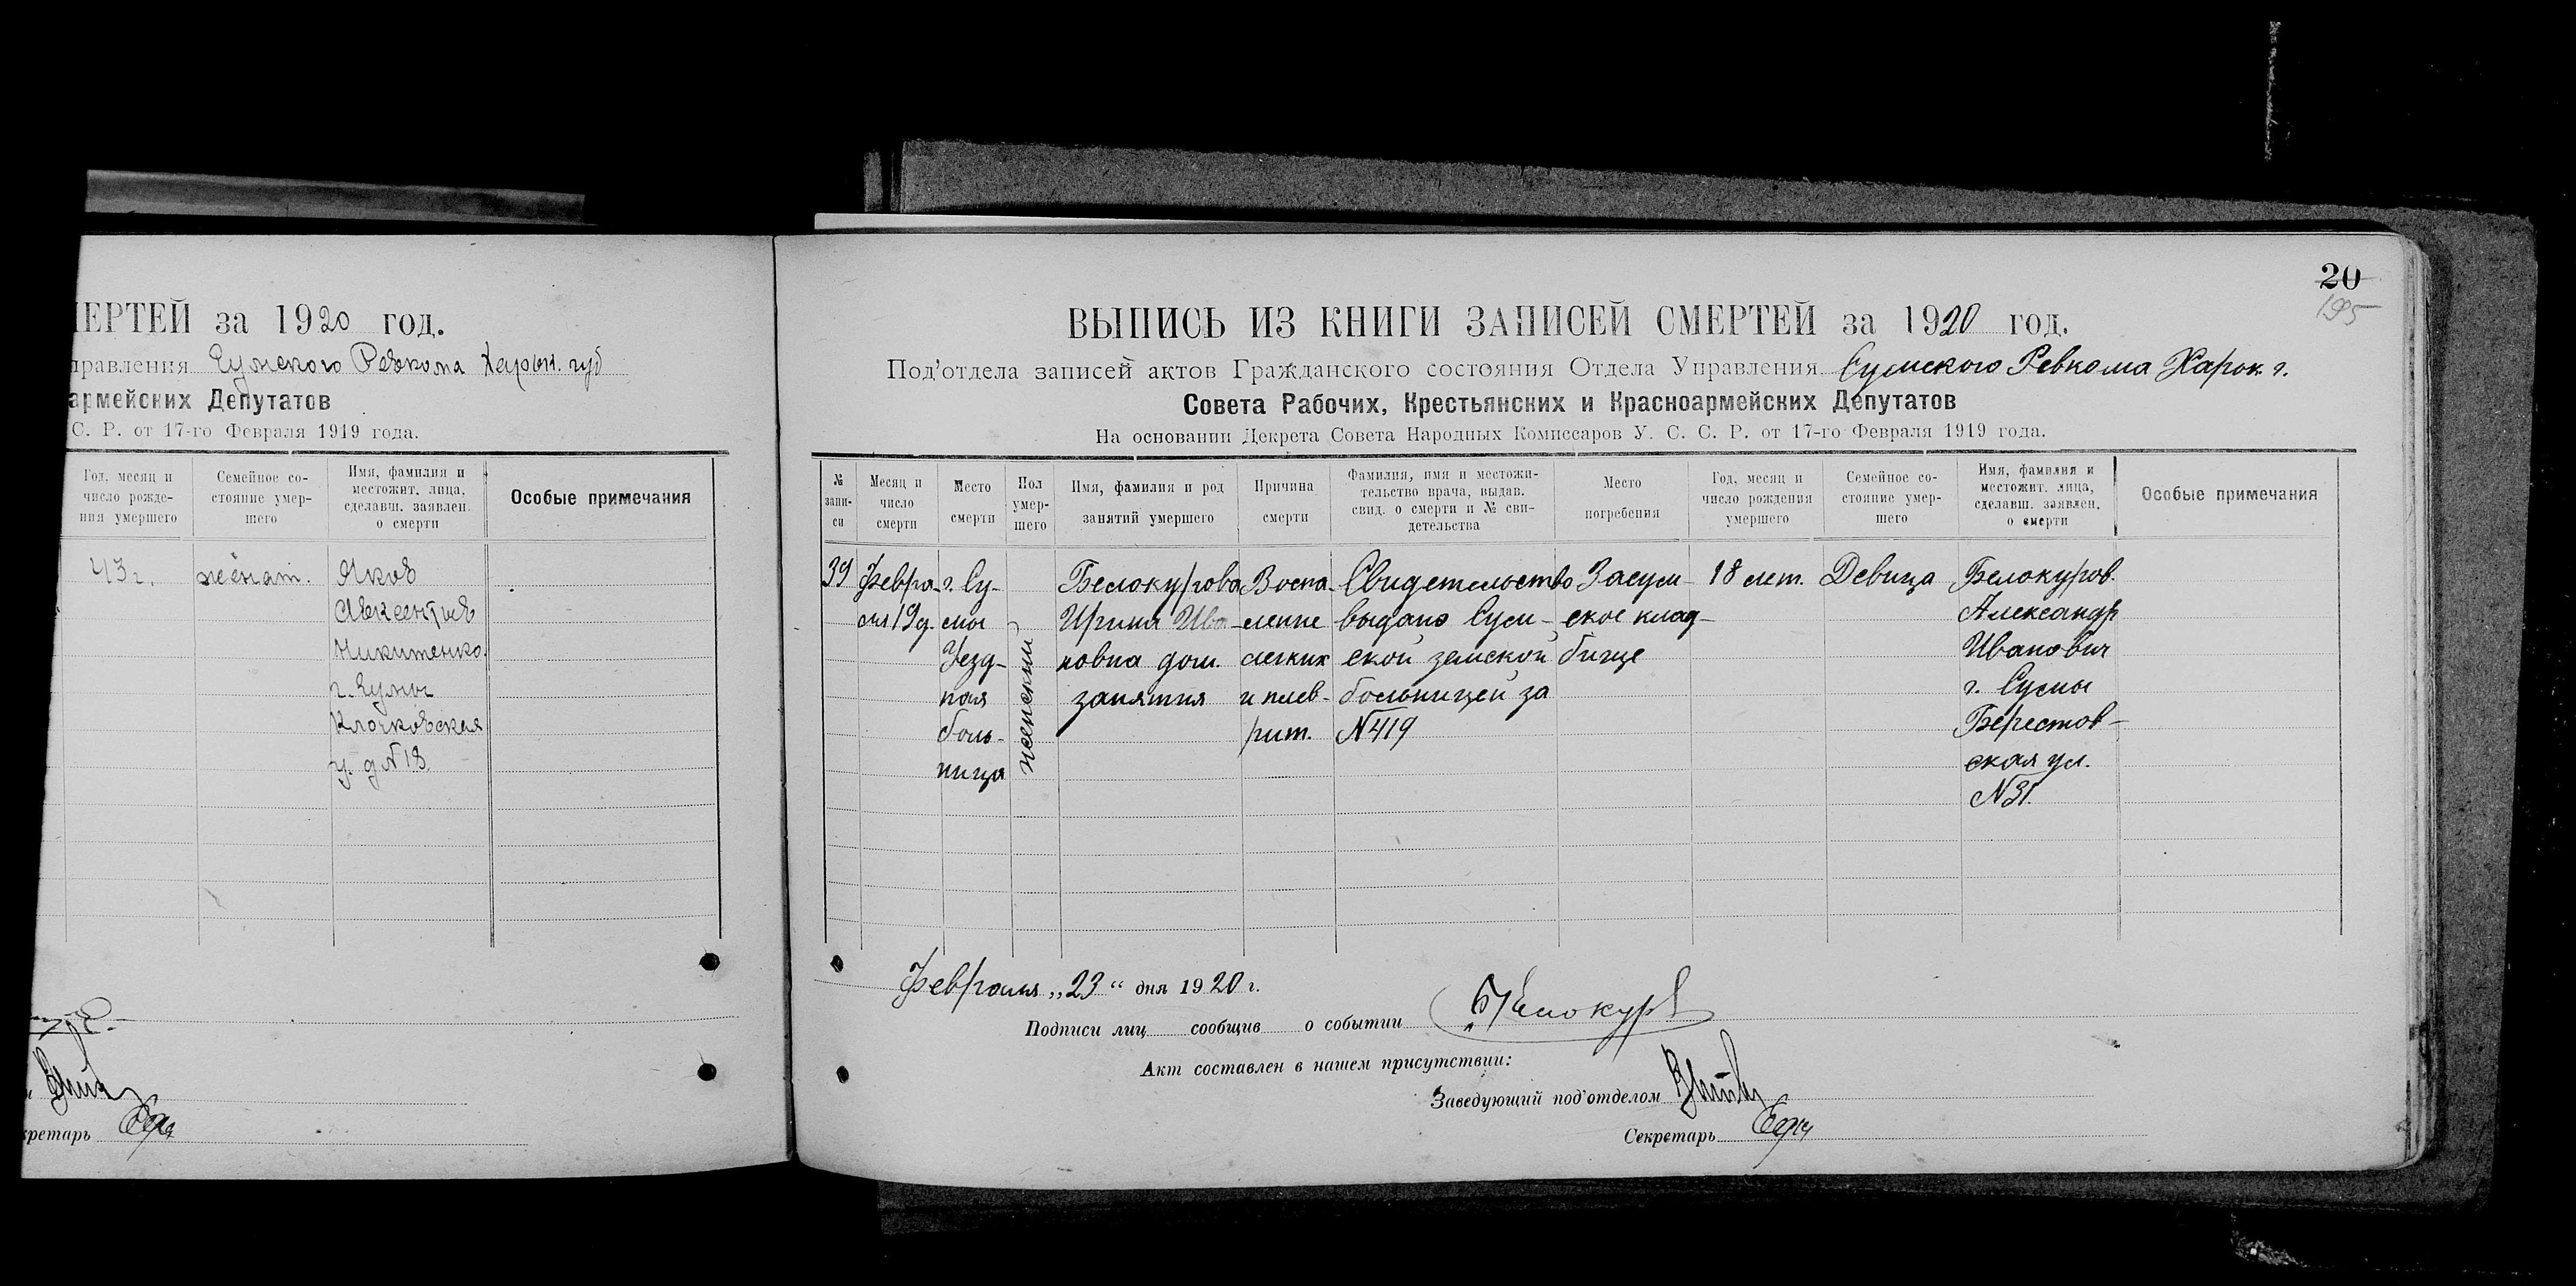 МЕРТЕЙ за 1920 год.
правления Сумского Ревкома Харьк. губ
армейских Депутатов
С. Р. от 17-го Февраля 1919 года.
Год, месяц и число рожде- ния умершего
Семейное со- стояние умер- шего
Имя, фамилия и местожит. лица, сделавш. заявлен. о смерти
Особые примечания
43 г. женат. Яков
Авксентьев
Никитенко.
г. Сумы
Клочковская
у. д № 18.
кретарь
20
195
ВЫПИСЬ ИЗ КНИГИ ЗАПИСЕЙ СМЕРТЕЙ за 1920 год.
Под'отдела записей актов Гражданского состояния Отдела Управления Сумского Ревкома Харок. г.
Совета Рабочих, Крестьянских и Красноармейских Депутатов
На основании Декрета Совета Народных Комиссаров У. С. С. Р. от 17-го Февраля 1919 года.
№ запи- си
Месяц и число смерти
Место смерти
Пол умер- шего
Имя, фамилия и род занятий умершего
Причина смерти
Фамилия, имя и местожи- тельство врача, выдав. свид. о смерти и № сви- детельства
Место погребения
Год, месяц и число рождения умершего
Семейное со- стояние умер- шего
Имя, фамилия и местожит. лица, сделавш. заявлен. о смерти
Особые примечания
39 Февра- г. Су- Белокурова Воспа- Свидетельство Засум- 18 лет. Девица Белокуров.
ля 19 д. мы Ирина Ива- ление выдано Сум- ское клад- Александр
Уезд- новна дом. легких ской земской бище Иванович
ная занятия и плев- больницей за г. Сумы
боль- рит. № 419 Берестов-
ница ская ул.
№ 31.
женский
Февраля „23“ дня 1920 г.
Подписи лиц сообщив о событии Белокуров
Акт составлен в нашем присутствии:
Заведующий под'отделом
Секретарь